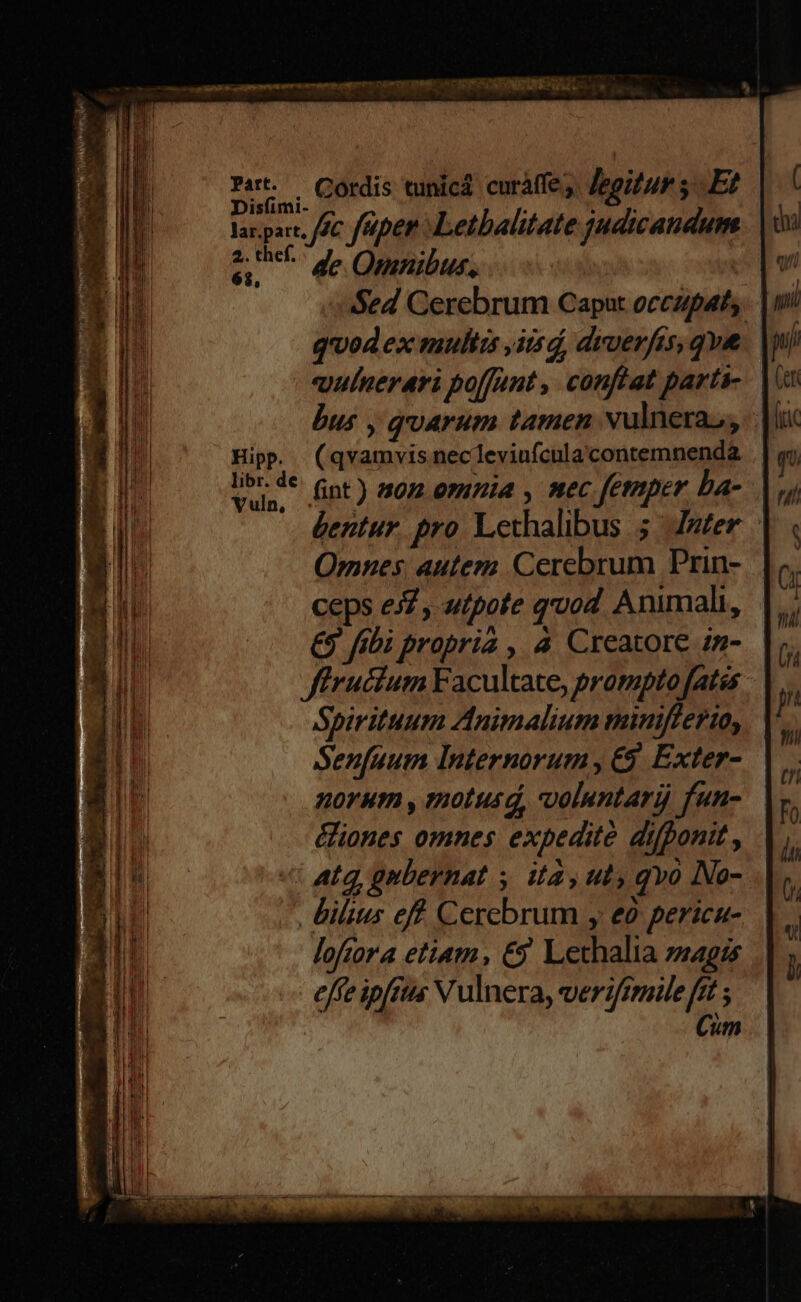 Part. Disſimi-
lar. part.
2. theſ.
63,
Cordis tunicâ curâſſe, legitur ; Et
ſic ſuper Lethalitate judicandum
de Omnibus.
Sed Cerebrum Caput occupat,
qvod ex multis , iisq́, diverſis, qvæ
vulnerari poſſunt , conſtat parti-
bus , qvarum tamen vulnera,
Hipp.
libr. de
Vuln,
(qvamvis nec leviuſcula contemnenda
ſint) non omnia , nec ſemper ha-
bentur pro Lethalibus ; Inter
Omnes autem Cerebrum Prin-
ceps eſt , utpote qvod Animali,
& ſibi propriâ , à Creatore in-
ſtructum Facultate, prompto ſatis
Spirituum Animalium miniſterio,
Senſuum Internorum , & Exter-
norum , motusq́, voluntarij fun-
ctiones omnes expeditè diſponit ,
atq, gubernat ; ità , ut, qvò No-
bilius eſt Cerebrum , eò pericu-
loſiora etiam, & Lethalia magis
eſſe ipſius Vulnera, veriſimile ſit ;
Cùm